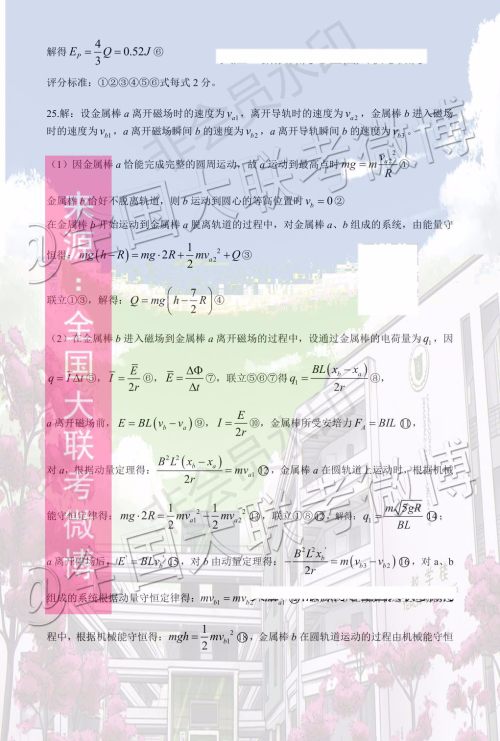 解得 E_P = 4/3 Q = 0.52J ⑥
评分标准：①②③④⑤⑥式每式 2 分。
25.解：设金属棒 a 离开磁场时的速度为 v_a1，离开导轨时的速度为 v_a2，金属棒 b 进入磁场
时的速度为 v_b1，a 离开磁场瞬间 b 的速度为 v_b2，a 离开导轨瞬间 b 的速度为 v_b3。
（1）因金属棒 a 恰能完成完整的圆周运动，故 a 运动到最高点时 mg = m v_a2²/R ①
金属棒 b 恰好不脱离轨道，则 b 运动到圆心的等高位置时 v_b = 0 ②
在金属棒 b 开始运动到金属棒 a 脱离轨道的过程中，对金属棒 a、b 组成的系统，由能量守
恒得：mg(h − R) = mg·2R + 1/2 mv_a2² + Q ③
联立①③，解得：Q = mg(h − 7/2 R) ④
（2）在金属棒 b 进入磁场到金属棒 a 离开磁场的过程中，设通过金属棒的电荷量为 q₁，因
q = I̅Δt ⑤，I̅ = E̅/2r ⑥，E̅ = ΔΦ/Δt ⑦，联立⑤⑥⑦得 q₁ = BL(x_b − x_a)/2r ⑧，
a 离开磁场前，E = BL(v_b − v_a) ⑨，I = E/2r ⑩，金属棒所受安培力 F_A = BIL ⑪，
对 a，根据动量定理得：B²L²(x_b − x_a)/2r = mv_a1 ⑫，金属棒 a 在圆轨道上运动时，根据机械
能守恒定律得：mg·2R = 1/2 mv_a1² − 1/2 mv_a2² ⑬，联立①⑧⑫，解得：q₁ = m√5gR/BL ⑭；
a 离开磁场后，E' = BLv_b' ⑮，对 b 由动量定理得：− B²L²x_b'/2r = m(v_b3 − v_b2) ⑯，对 a、b
组成的系统根据动量守恒定律得：mv_b1 = mv_b2
程中，根据机械能守恒得：mgh = 1/2 mv_b1² ⑱，金属棒 b 在圆轨道运动的过程由机械能守恒
来源：全国大联考微博
@全国大联考微博
非会员水印